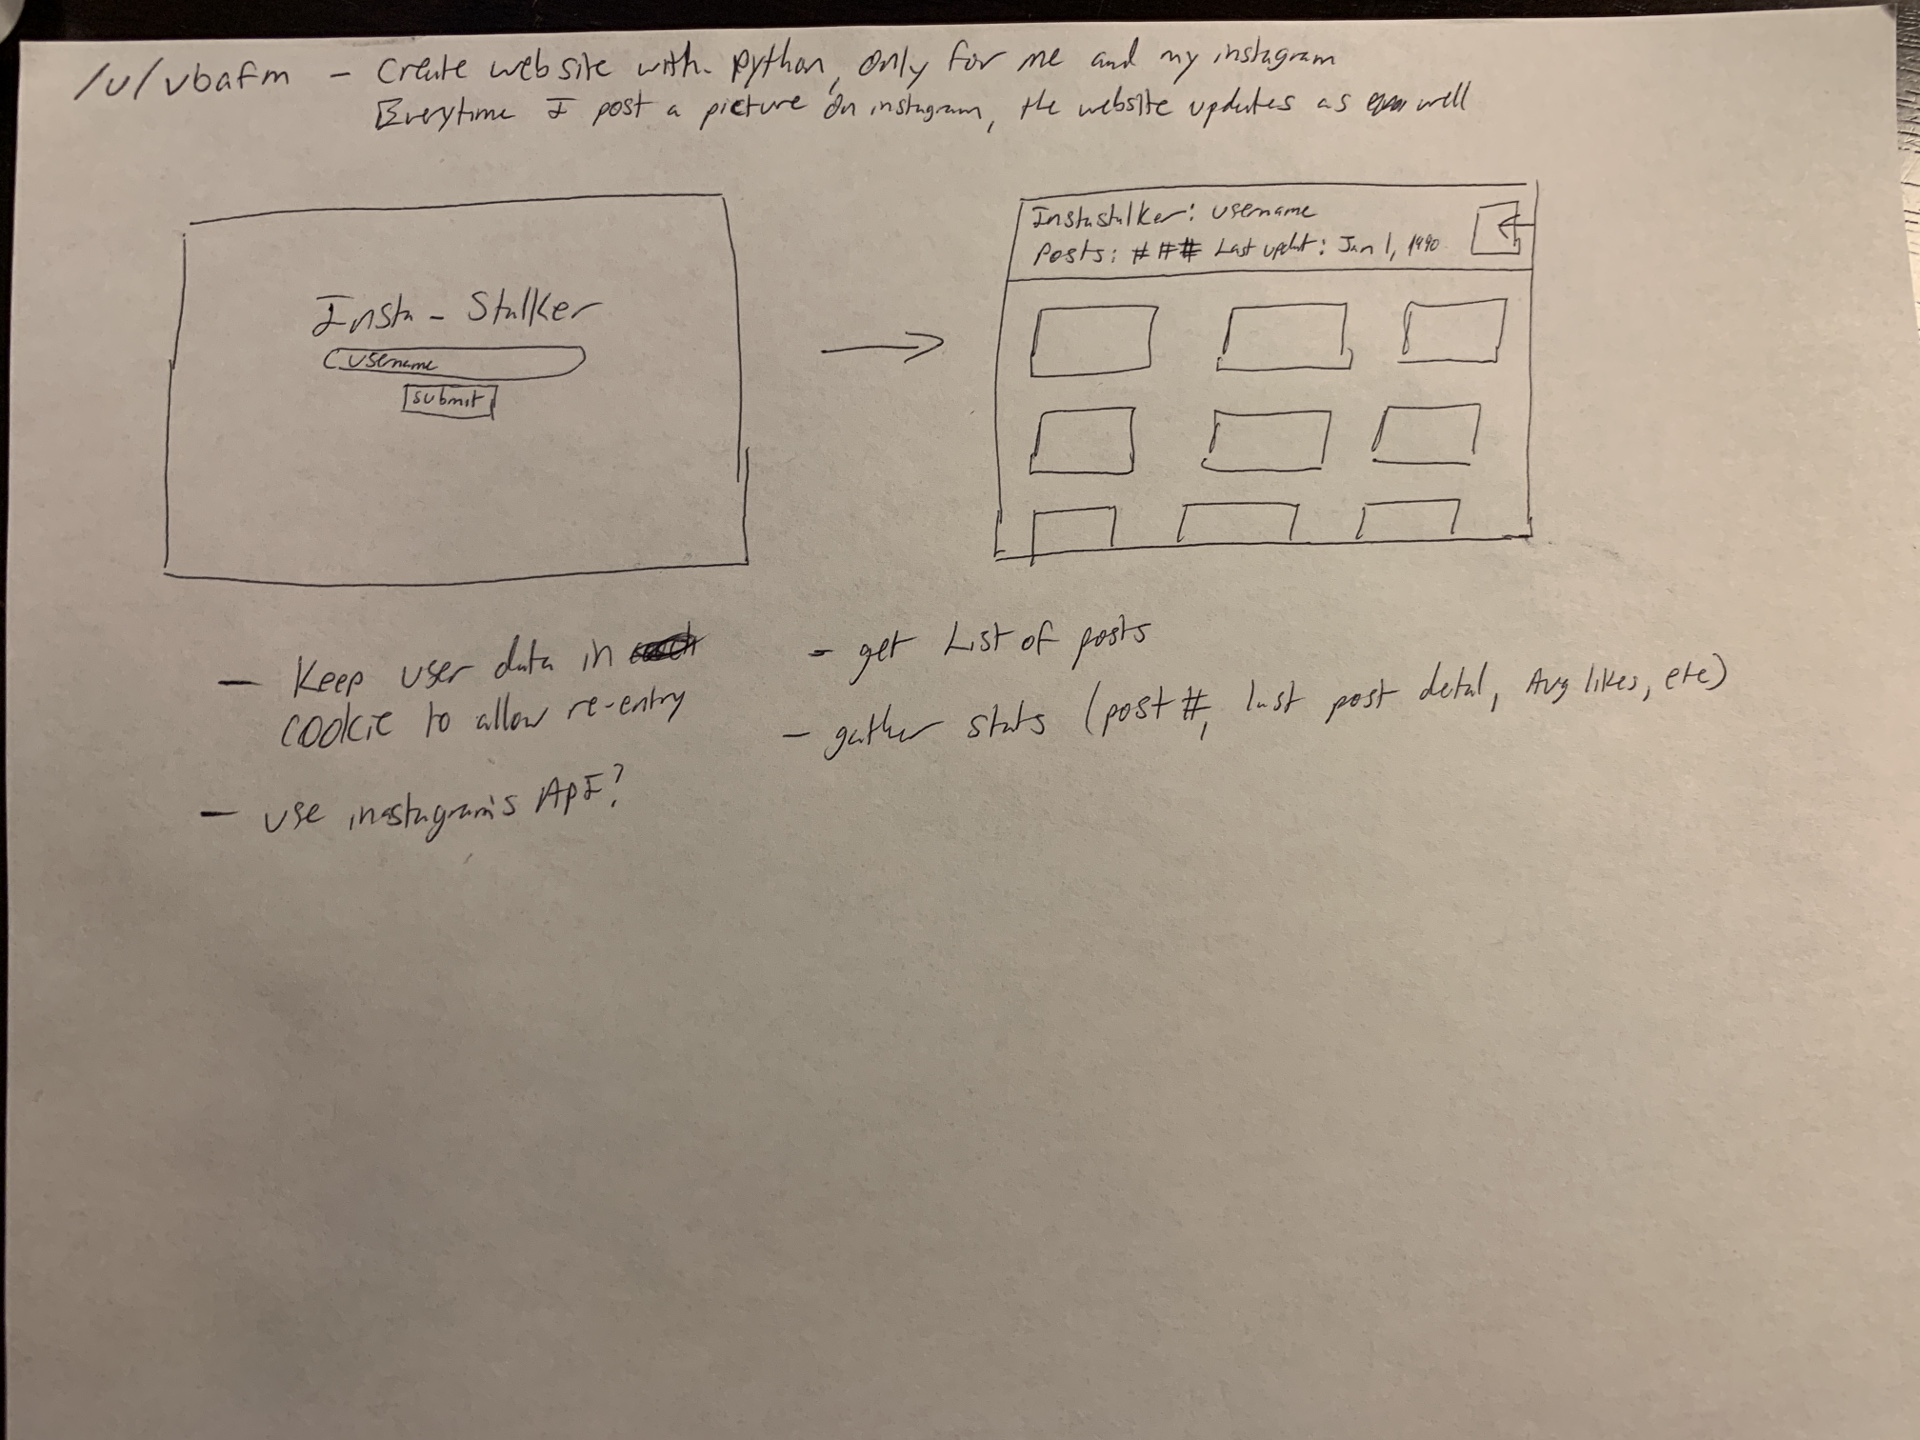 /u/vbafm - Create website with python, only for me and my instagram
Everytime I post a picture on instagram, the website updates as well
Insta - Stalker
username
submit
Instastalker: username
Posts: ### Last updt: Jan 1, 1990
- Keep user data in
cookie to allow re-entry
- use inastagram's ApI?
- get List of posts
- gather stats (post #, last post detal, Avg likes, etc)